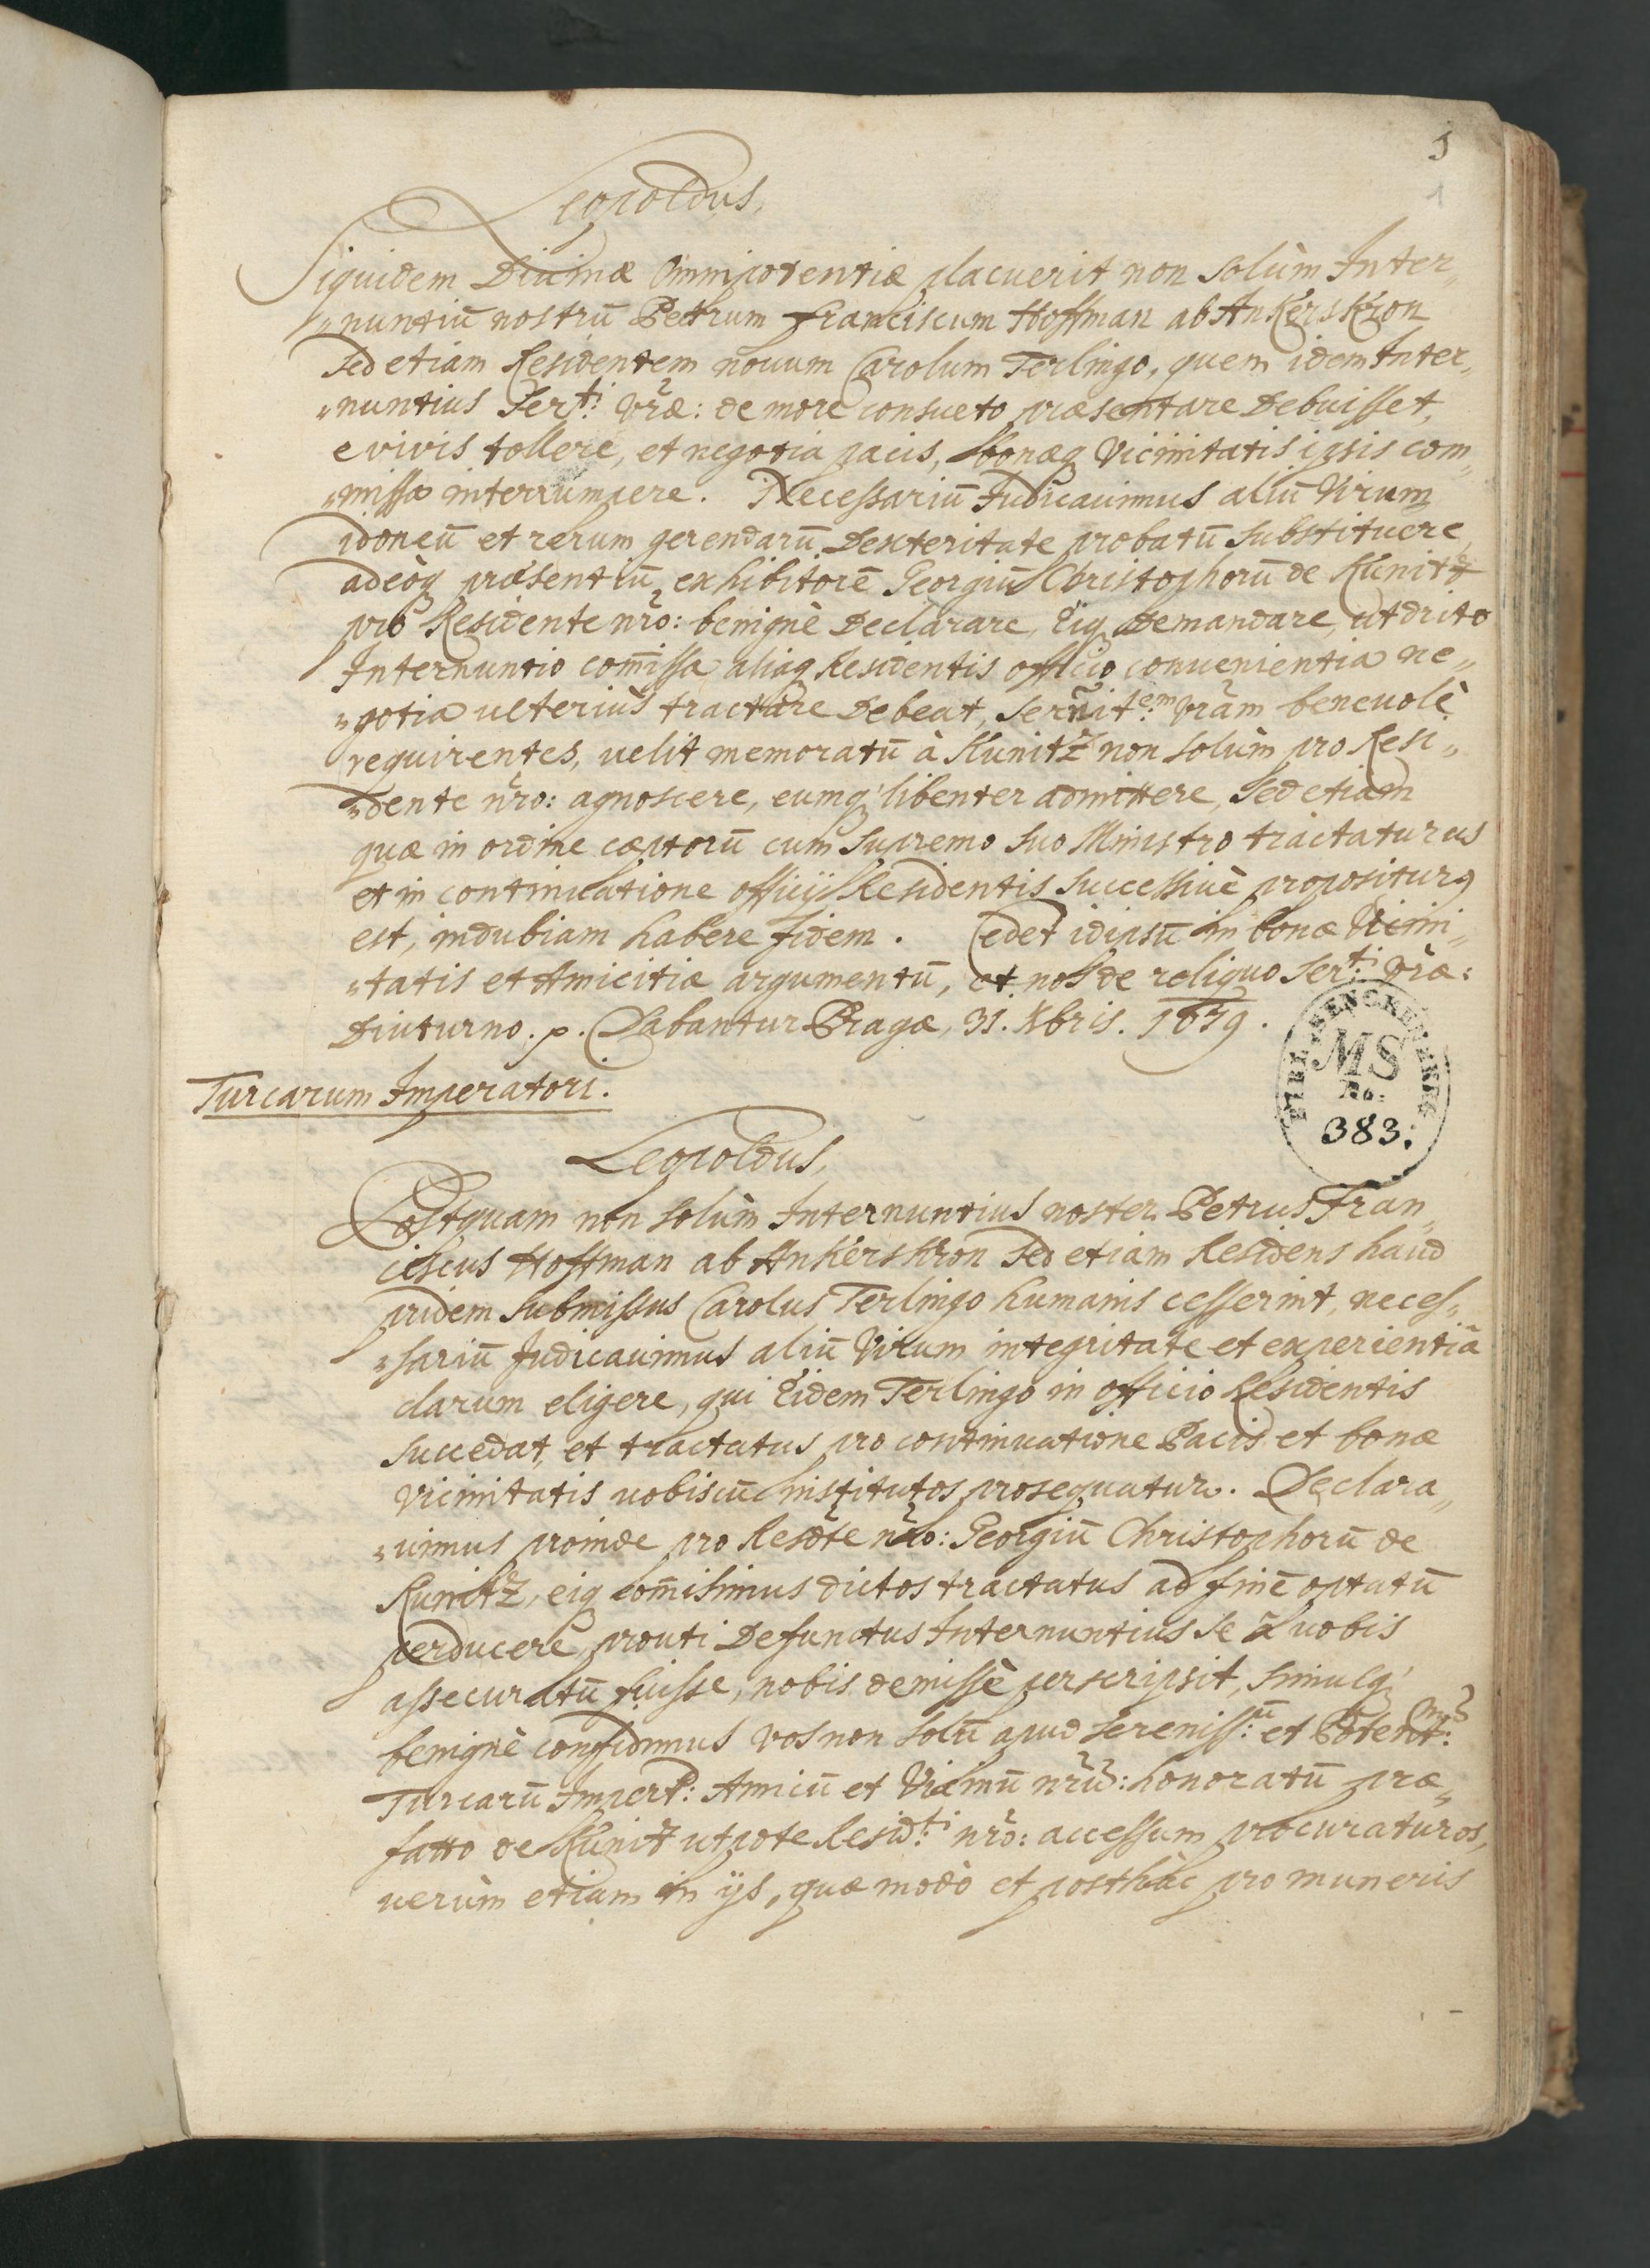 1
1
Leopoldus,
Siquidem Diuinæ Omnipotentiæ placuerit non solùm Inter„
„nuntiū nostrū Petrum Franciscum Hoffman ab Ankerskron
sed etiam Residentem nouum Carolum Terlingo, quem idem Inter„
„nuntius Ser.ti vr̃æ: de more consueto præsentare debuisset,
e vivis tollere, et negotia pacis, bonæq Vicinitatis ipsis com„
„missa interrumpere. Necessariū Judicauimus aliū Virum
idoneū et rerum gerendarū dexteritate probatū substituere,
adeòq præsentiū exhibitorē Georgiū Christophorū de Kunitz
pro Residente nr̃o: benignè declarare, Eiq demandare, ut dicto
Internuntio com̄issa, aliaq Residentis officio conuenientia ne„
„gotia ulteriùs tractare debeat, Serñit.em vr̃am beneuolè
requirentes, uelit memoratū à Kunitz non solùm pro Resi„
„dente nr̃o: agnoscere, eumq' libenter admittere, sed etiam
quæ in ordine cœptorū cum Supremo suo Ministro tractaturus
et in continuatione officij Residentis successiuè propositurq
est, indubiam habere fidem. Cedet id ipsū in bonæ Vicini„
„tatis et Amicitiæ argumentū, et nos de reliquo Ser.ti vr̃æ:
Diuturno. p. Dabantur Pragæ, 31. Xbris. 1679.
Turcarum Imperatori.
MS
No.
383.
Leopoldus,
Postquam non solùm Internuntius noster Petrus Fran„
ciscus Hoffman ab Ankerskron sed etiam Residens haud
pridem submissus Carolus Terlingo humanis cesserint, neces„
„sariū Judicauimus aliū Virum integritate et experientiâ
clarum eligere, qui Eidem Terlingo in officio Residentis
succedat, et tractatus pro continuatione Pacis et bonæ
vicinitatis uobiscū institutos prosequatur. Declara„
„uimus proinde pro Resd̃te nr̃o: Georgiū Christophorū de
Kunitz, eiq com̄isimus dictos tractatus ad finē optatū
perducere, prouti defunctus Internuntius se à uobis
assecuratū fuisse, nobis demissè perscripsit, simulq'
benignè confidimus vos non solū apud Sereniss.ū et Potent.mũ
Turcarū Imper.: Amicū et Vicinū nr̃ū: honoratū præ„
fatto de Kunitz utpote Resid.ti nr̃o: accessum procuraturos,
uerùm etiam in ijs, quæ modò et posthàc pro muneris